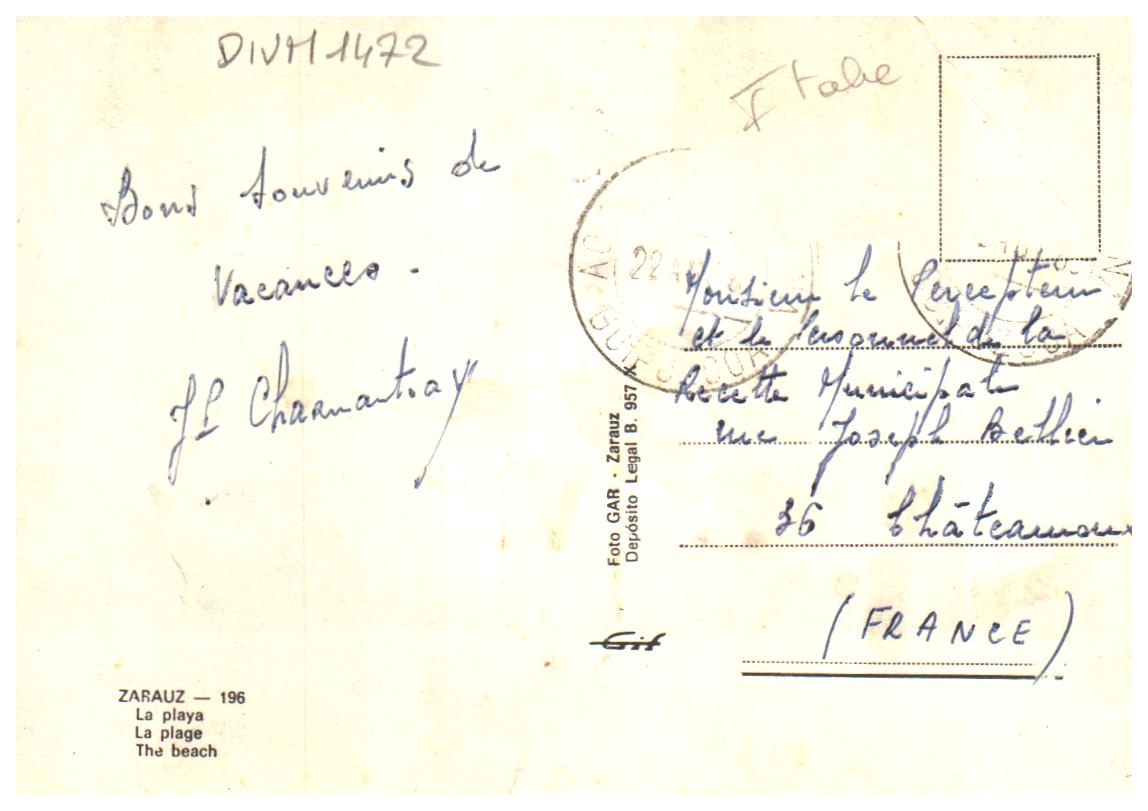 DIVM1472
Itabe
Bons souvenirs de
Vacances.
JP Charmantray
22
GUIPUZCOA
Monsieur le Percepteur
et le Personnel de la
Recette Municipale
rue Joseph Bellier
36 Châteauroux
(FRANCE)
Foto GAR - Zarauz
Depósito Legal B. 957
Gif
ZARAUZ — 196
La playa
La plage
The beach